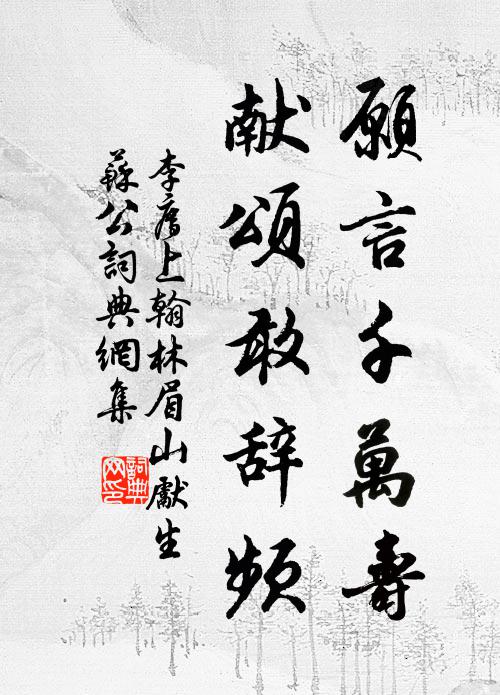 願言千萬壽
献頌敢辞頻
李廌上翰林眉山獻生
蘇公詞典網集
詞典
网印